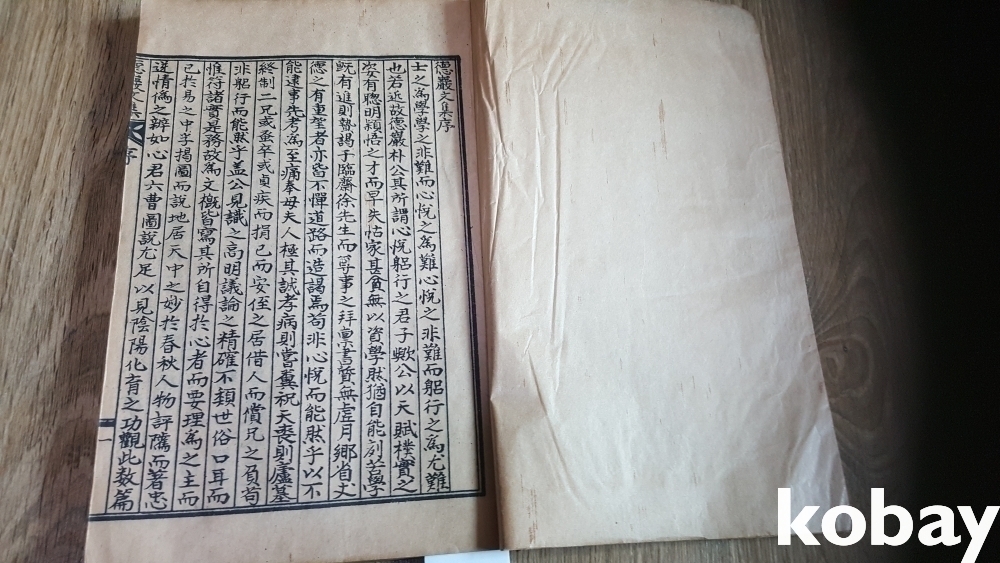 德巖文集序
士之爲學學之非難而心悅之爲難心悅之非難而躬行之爲尤難
也若近故德巖朴公其所謂心悅躬行之君子歟公以天賦樸實之
姿有聰明穎悟之才而早失怙家甚貧無以資學然猶自能刻苦學
旣有進則贄謁于臨齋徐先生而尊事之拜稟書質無虛月鄉省丈
德之有重望者亦皆不憚道路而造謁焉苟非心悅而能然乎以不
能逮事先考爲至痛奉母夫人極其誠孝病則嘗糞祝天喪則廬墓
終制二兄或蚤卒或貞疾而捐己而安侄之居借人而償兄之負苟
非躬行而能然乎盖公見識之高明議論之精確不類世俗口耳而
惟符諸實是務故爲文槪皆寫其所自得於心者而要理爲之主而
已於易之中字揭圖而說地居天中之妙於春秋人物評隲而著忠
逆情僞之辨如心君六曹圖說尤足以見陰陽化育之功觀此数篇
德巖文集 序 一
kobay